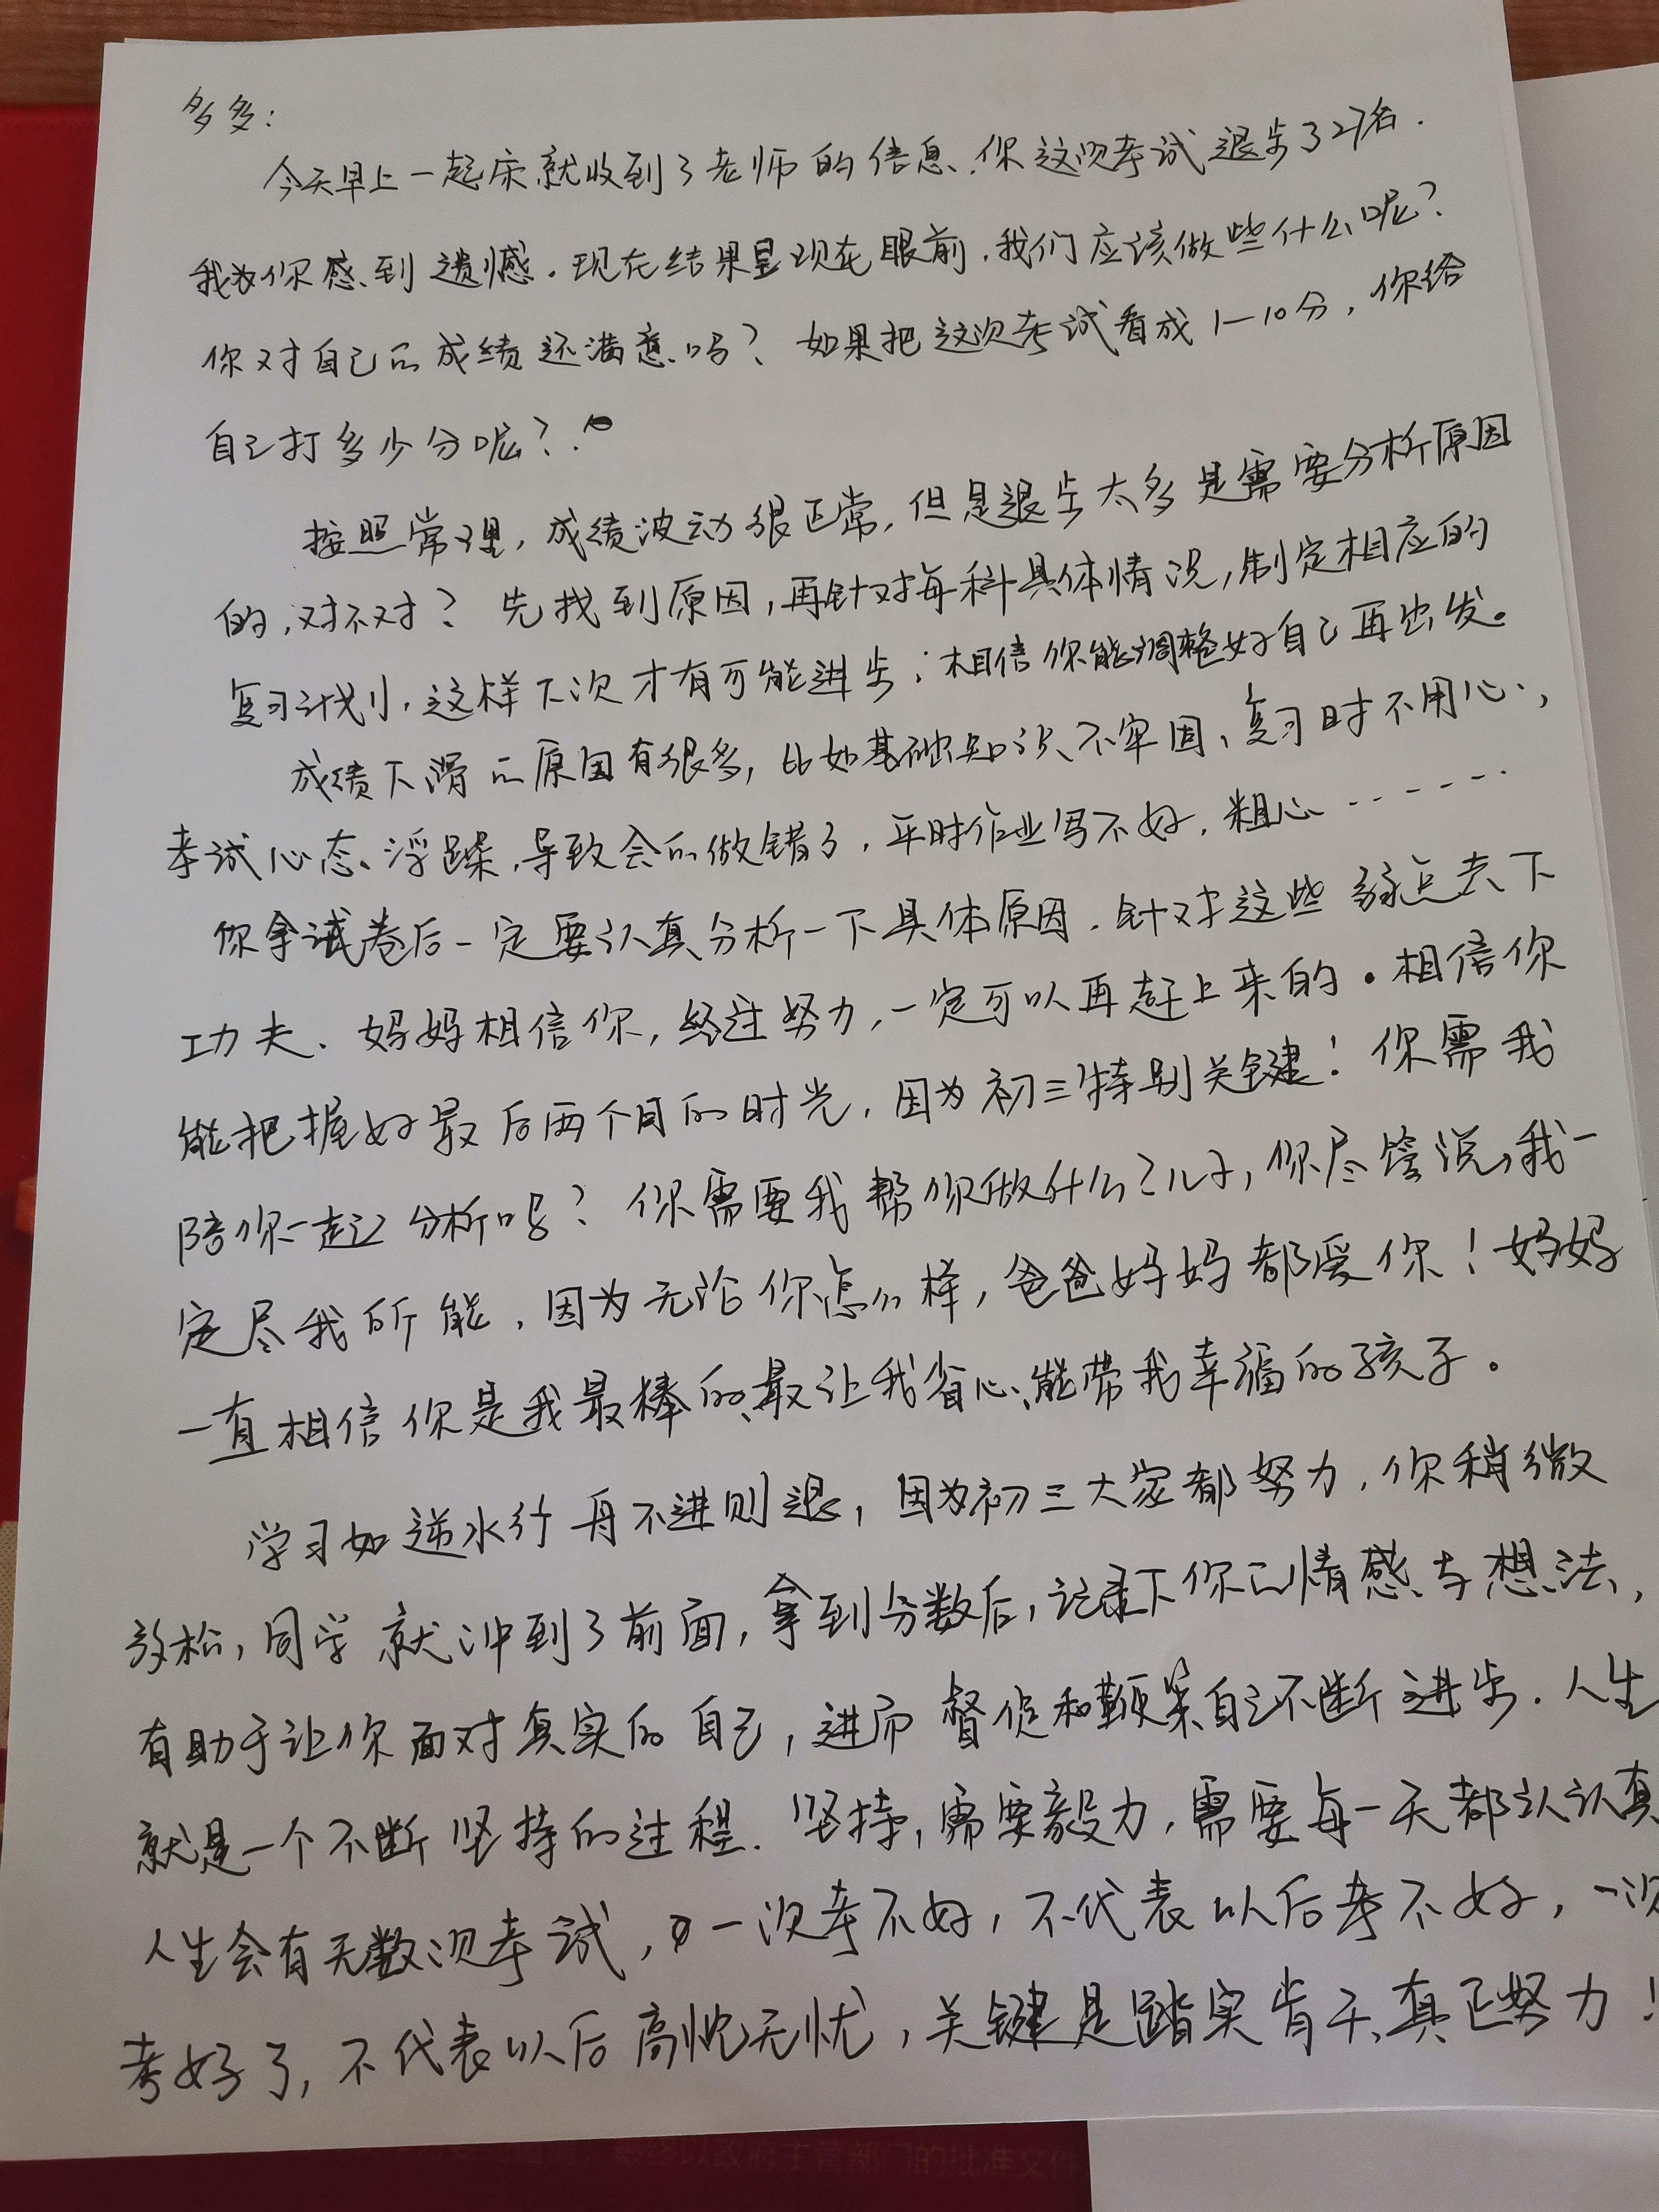 多多:
今天早上一起床就收到了老师的信息,你这次考试退步了27名.
我为你感到遗憾.现在结果呈现在眼前,我们应该做些什么呢?
你对自己的成绩还满意吗?如果把这次考试看成1—10分,你给
自己打多少分呢?
按照常理,成绩波动很正常,但是退步太多是需要分析原因
的,对不对?先找到原因,再针对每科具体情况,制定相应的
复习计划,这样下次才有可能进步;相信你能调整好自己再出发。
成绩下滑的原因有很多,比如基础知识不牢固、复习时不用心,
考试心态浮躁,导致会的做错了,平时作业写不好,粗心……
你拿试卷后一定要认真分析一下具体原因.针对这些弱点去下
功夫、妈妈相信你,经过努力,一定可以再赶上来的.相信你
能把握好最后两个月的时光,因为初三特别关键!你需我
陪你一起分析吗?你需要我帮你做什么?儿子,你尽管说,我一
定尽我所能,因为无论你怎么样,爸爸妈妈都爱你!妈妈
一直相信你是我最棒的、最让我省心、能带我幸福的孩子。
学习如逆水行舟不进则退,因为初三大家都努力,你稍微
放松,同学就冲到了前面,拿到分数后,记录下你的情感与想法,
有助于让你面对真实的自己,进而督促和鞭策自己不断进步.人生
就是一个不断坚持的过程.坚持,需要毅力,需要每一天都认认真
人生会有无数次考试,一次考不好,不代表以后考不好,一次
考好了,不代表以后高枕无忧,关键是踏实肯干、真正努力!
最终以政府主管部门的批准文件